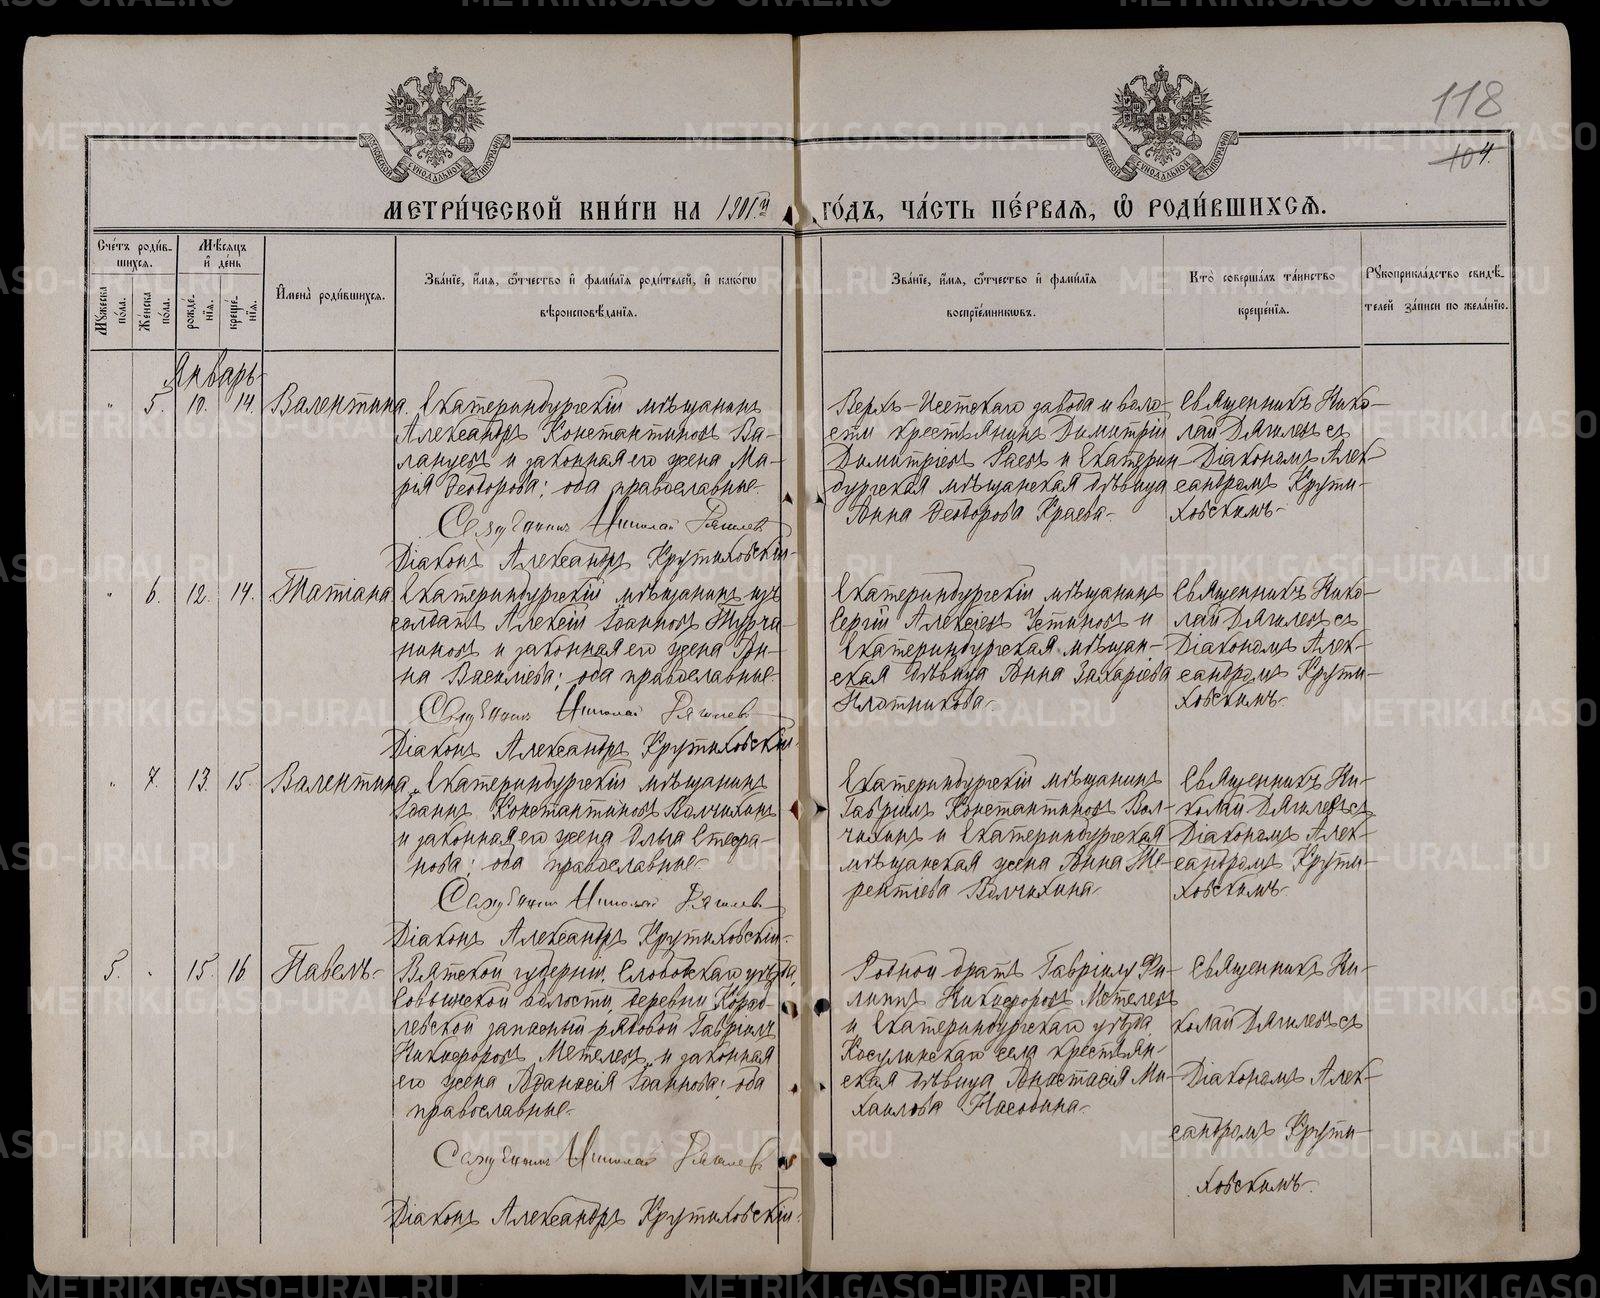 118
104.
МЕТРИ́ЧЕСКОЙ КНИ́ГИ НА 1901й ГО́ДЪ, ЧА́СТЬ ПЕ́РВАЯ, Ѡ РОДИ́ВШИХСЯ.
Сче́тъ роди́в-
шихся.
Мꙋжеска по́ла.
Же́нска по́ла.
Мѣ́сяцъ
и̂ де́нь
рожде́-
нїя.
креще́-
нїя.
И҆мена̀ роди́вшихся.
Зва́нїе, и҆́мя, ѻ҆́тчество и҆ фами́лїя роди́телей, и҆ како́гѡ
вѣроисповѣ́данїя.
Зва́нїе, и҆́мя, ѻ҆́тчество и҆ фами́лїя
воспрїе́мникѡвъ.
Кто̀ соверша́лъ та́инство
креще́нїя.
Рꙋкоприкла́дство свидѣ́-
телей за́писи по жела́нїю.
Январь
" 5. 10. 14. Валентина.
Екатеринбургскій мѣщанинъ
Александръ Константиновъ Ва-
лануевъ и законная его жена Ма-
рія Ѳеодорова; оба православные.
Священникъ Николай Дягилевъ
Діаконъ Александръ Крутиховскій
Верхъ-Исетскаго завода и воло-
сти крестьянинъ Димитрій
Димитріевъ Раевъ и Екатерин-
бургская мѣщанская дѣвица
Анна Ѳеодорова Краева.
Священникъ Нико-
лай Дягилевъ съ
Діакономъ Алек-
сандромъ Крути-
ховскимъ.
" 6. 12. 14. Татіана
Екатеринбургскій мѣщанинъ изъ
солдатъ Алексій Іоанновъ Турча-
ниновъ и законная его жена Ан-
на Васильева; оба православные
Священникъ Николай Дягилевъ
Діаконъ Александръ Крутиховскій
Екатеринбургскій мѣщанинъ
Сергій Алексіевъ Устиновъ и
Екатеринбургская мѣщан-
ская дѣвица Анна Захаріева
Плотникова.
Священникъ Нико-
лай Дягилевъ съ
Діакономъ Алек-
сандромъ Крути-
ховскимъ.
" 7. 13. 15. Валентина
Екатеринбургскій мѣщанинъ
Іоаннъ Константиновъ Волчихинъ
и законная его жена Ольга Стефа-
нова; оба православные
Священникъ Николай Дягилевъ
Діаконъ Александръ Крутиховскій.
Екатеринбургскій мѣщанинъ
Гавріилъ Константиновъ Вол-
чихинъ и Екатеринбургская
мѣщанская жена Анна Те-
рентіева Волчихина
Священникъ Ни-
колай Дягилевъ съ
Діакономъ Алек-
сандромъ Крути-
ховскимъ.
5. " 15. 16 Павелъ.
Вятской губерніи, Слободскаго уѣзда,
волости, деревни
запасный рядовой Гавріилъ
Никифоровъ Метелевъ и законная
его жена Аѳанасія Іоаннова; оба
православные.
Священникъ Николай Дягилевъ
Діаконъ Александръ Крутиховскій.
Родной братъ Гавріилу Фи-
липпъ Никифоровъ Метелевъ
и Екатеринбургскаго уѣзда,
Косулинскаго села крестьян-
ская дѣвица Анастасія Ми-
хаилова
Священникъ Ни-
колай Дягилевъ съ
Діакономъ Алек-
сандромъ Крути-
ховскимъ.
METRIKI.GASO-URAL.RU